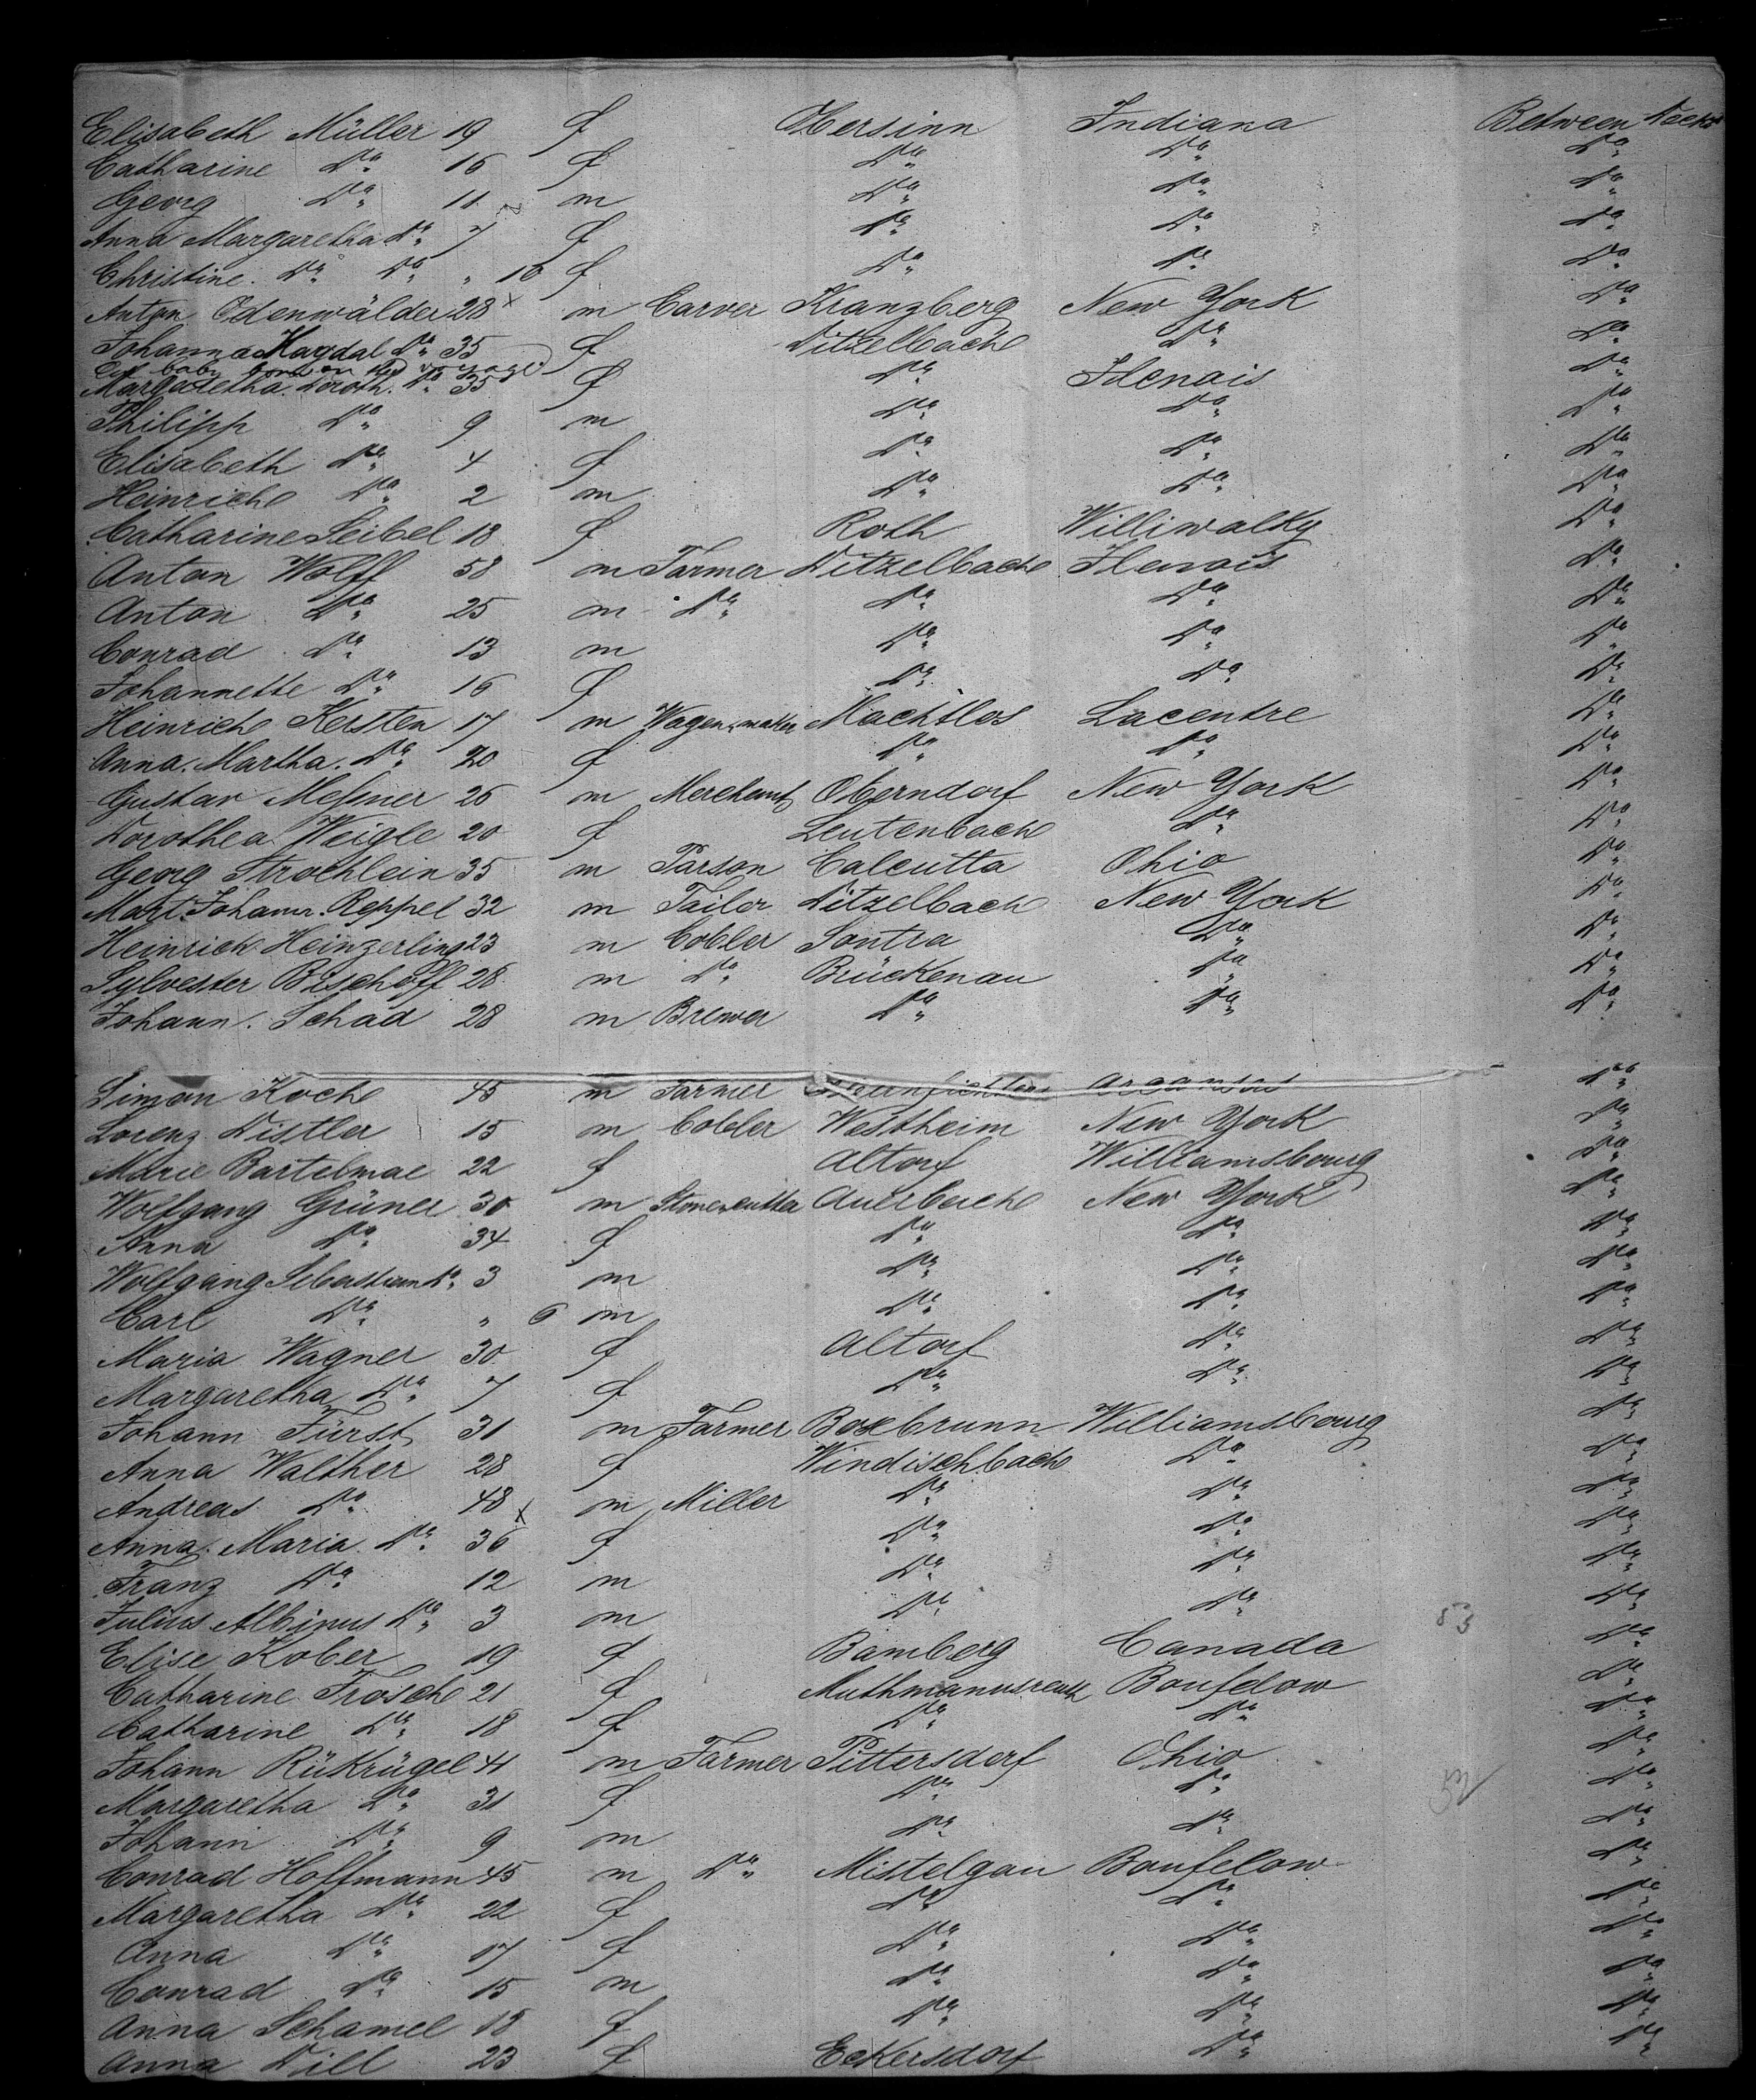 Elisabeth Müller 19 f Obersinn Indiana Between Decks
Catharine Do 16 f Do Do Do
Georg Do 11 m Do Do Do
Anna Margaretha Do 7 f Do Do Do
Christine Do Do " 10 f Do Do Do
Anton Odenwälder 28 x m Carver Kranzberg New York Do
Johanna Magdal Do 35 f Ditzelbach Do Do
baby born on the voyage
Margaretha Doroth. Do 35 f Do Ilenais Do
Philipp Do 9 m Do Do Do
Elisabeth Do 4 f Do Do Do
Heinrich Do 2 m Do Do Do
Catharine Seibel 18 f Roth Williwalky Do
Anton Wolff 58 m Farmer Ditzelbach Ilenois Do
Anton Do 25 m Do Do Do Do
Conrad Do 13 m Do Do Do
Johannette Do 16 f Do Do Do
Heinrich Kersten 17 m Wagenmaker Machtlos Lacentre Do
Anna Martha Do 20 f Do Do Do
Gustav Meßner 26 m Merchant Oberndorf New York Do
Dorothea Weigle 20 f Leutenbach Do Do
Georg Stroehlein 35 m Parson Calcutta Ohio Do
Mart. Johann. Reppel 32 m Tailor Ditzelbach New York Do
Heinrich Heinzerling 23 m Cobler Sontra Do Do
Sylvester Bischoff 28 m Do Brückenau Do Do
Johann Schad 28 m Brewer Do Do Do
Simon Koch 45 m Farmer Arcansas Do
Lorenz Distler 15 m Cobler Westheim New York Do
Marie Bartelmae 22 f Altorf Williamsbourg Do
Wolfgang Grüner 30 m Stonecutter Auerbach New York Do
Anna Do 34 f Do Do Do
Wolfgang Sebastian Do 3 m Do Do Do
Carl Do " 6 m Do Do Do
Maria Wagner 30 f Altorf Do Do
Margaretha Do 7 f Do Do Do
Johann Fürst 31 m Farmer Boxbrunn Williamsbourg Do
Anna Walther 28 f Windischbach Do Do
Andreas Do 48 x m Miller Do Do Do
Anna Maria Do 36 f Do Do Do
Franz Do 12 m Do Do Do
Julius Albinus Do 3 m Do Do 53 Do
Elise Kober 19 f Bamberg Canada Do
Catharine Frosch 21 f Muthmannsreuth Boufelow Do
Catharine Do 18 f Do Do Do
Johann Rükrügel 41 m Farmer Pittersdorf Ohio Do
Margaretha Do 31 f Do Do Do
Johann Do 9 m Do Do Do
Conrad Hoffmann 45 m Do Mistelgau Boufelow Do
Margaretha Do 22 f Do Do Do
Anna Do 17 f Do Do Do
Conrad Do 15 m Do Do Do
Anna Schamel 18 f Do Do Do
Anna Dill 23 f Eckersdorf Do Do